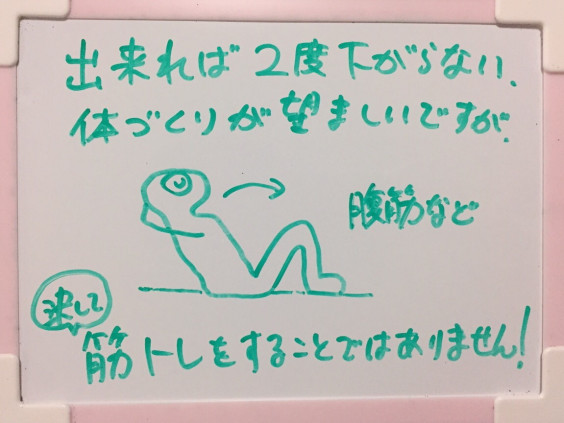 出来れば2度下がらない、
体づくりが望ましいですが、
腹筋など
決して
筋トレをすることではありません!